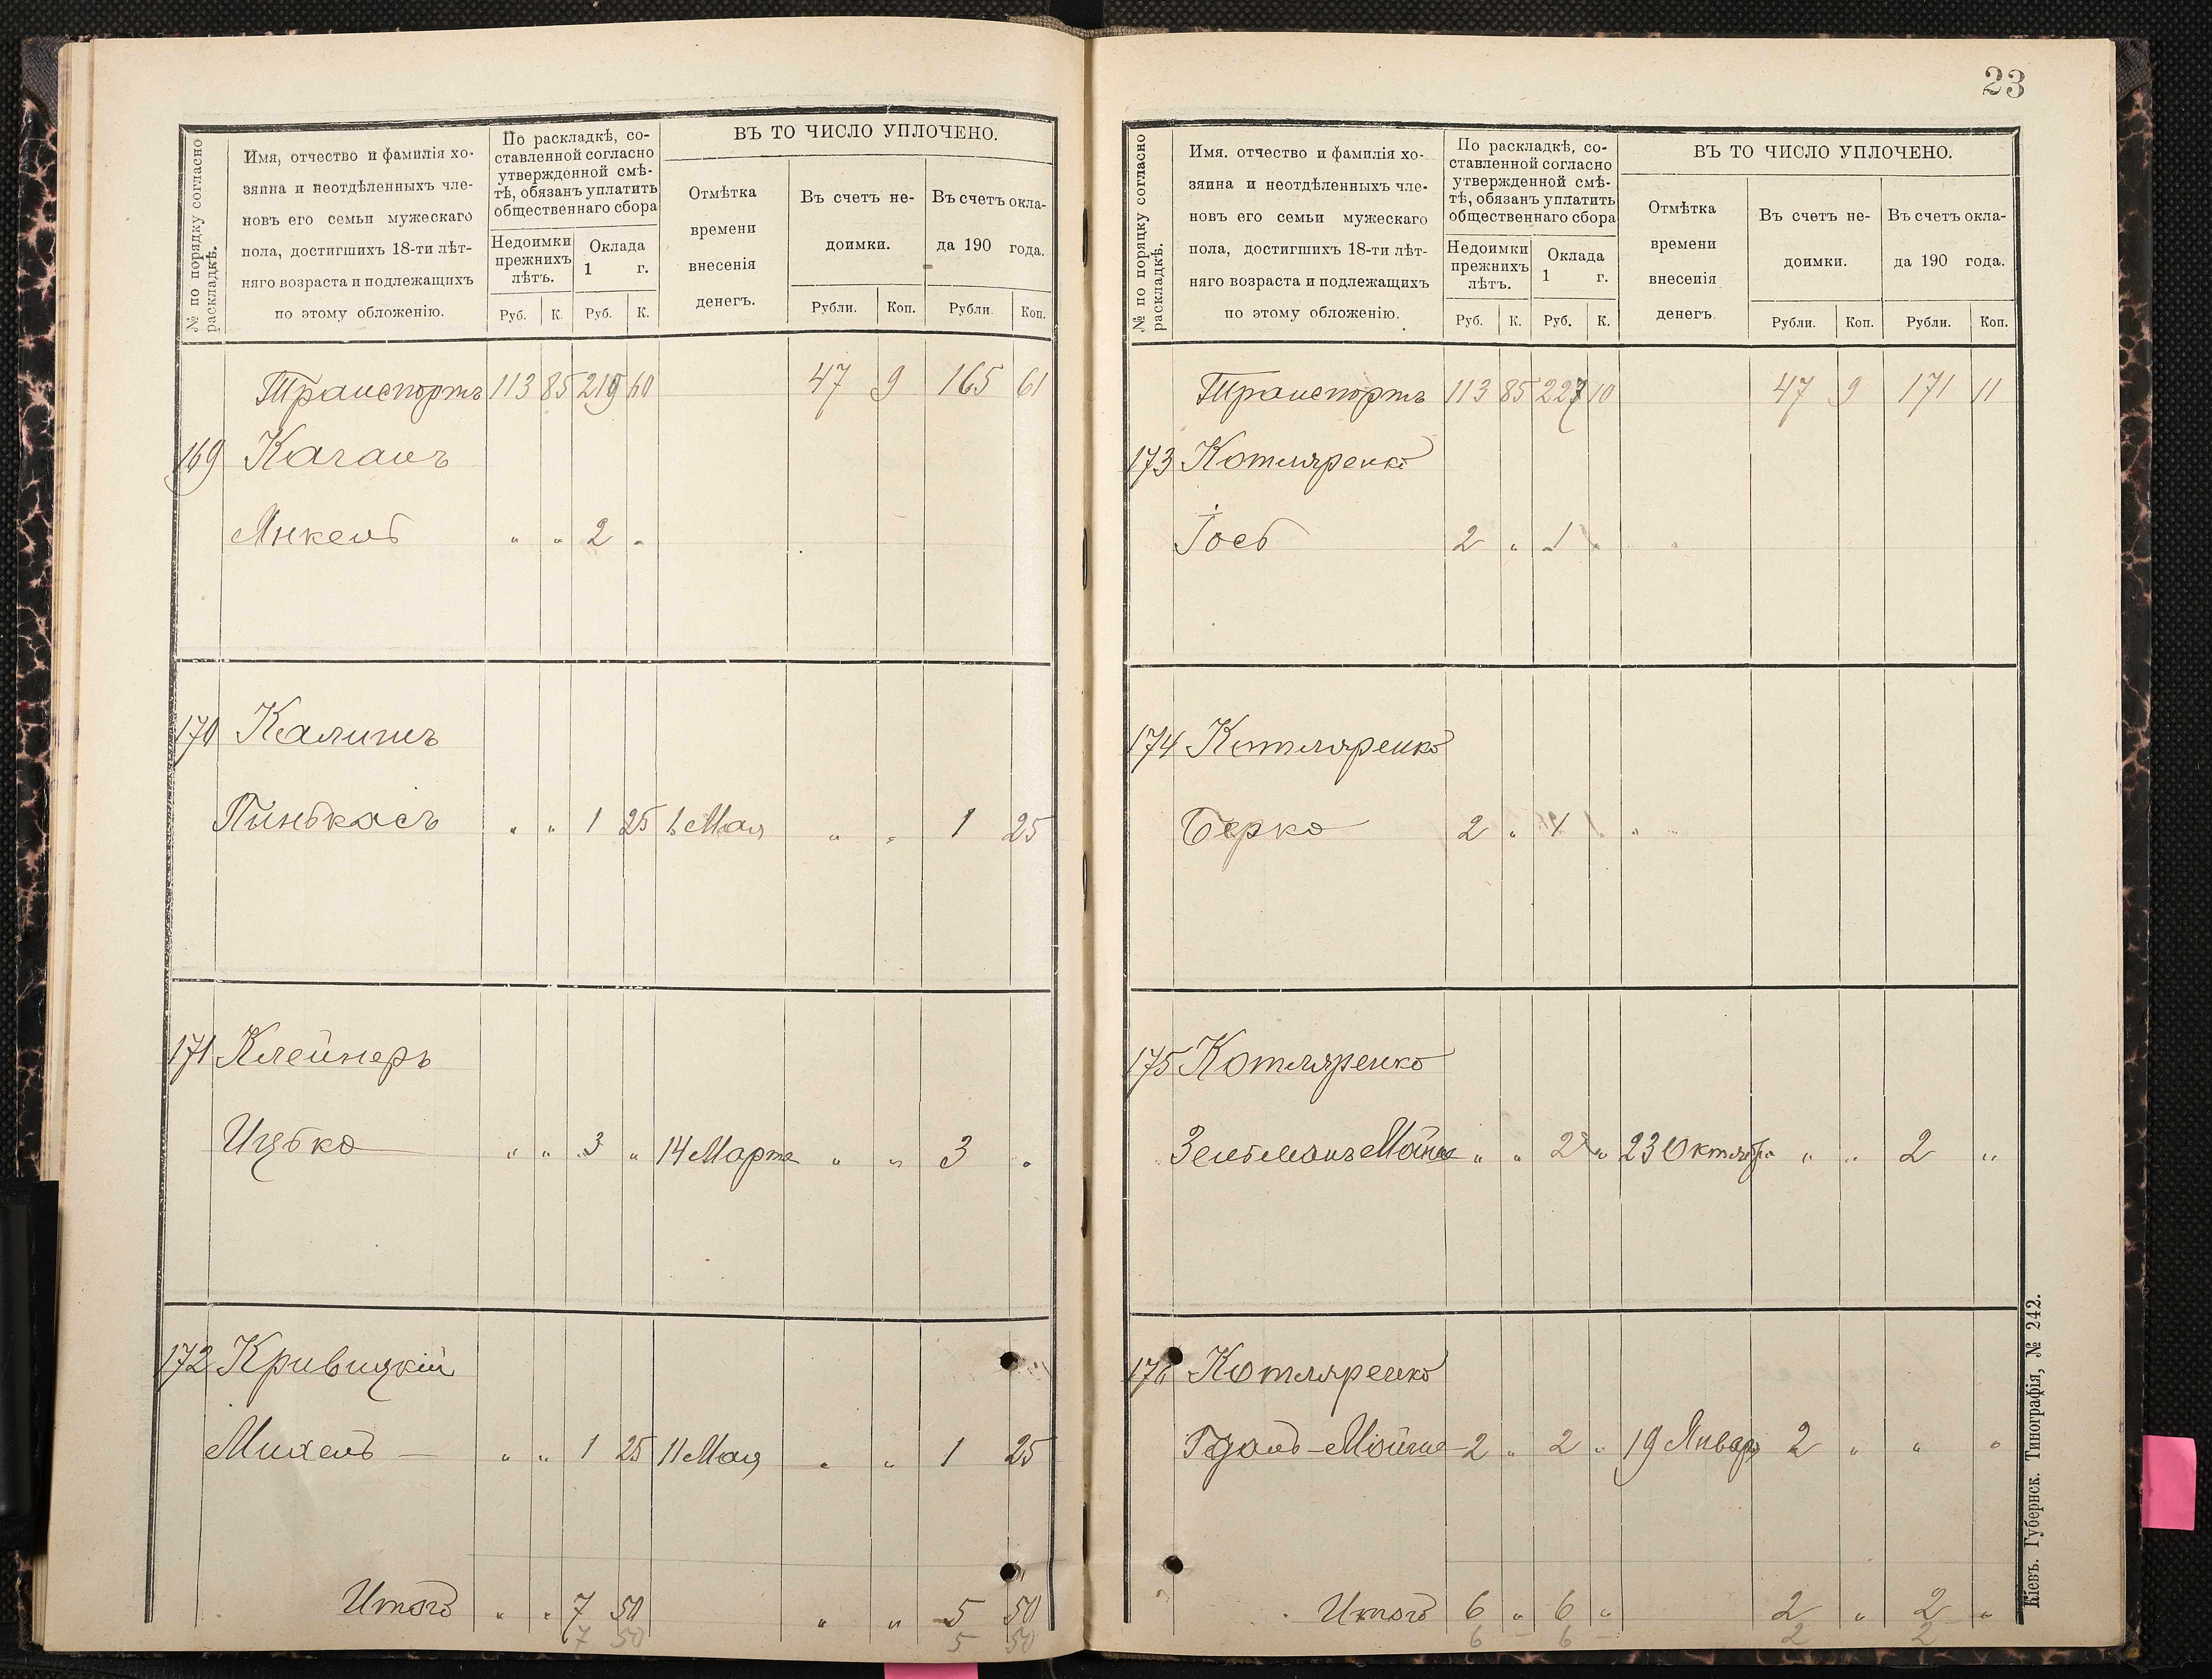 23
№ по порядку согласно раскладкѣ.
Имя, отчество и фамилія хозяина и неотдѣленныхъ членовъ его семьи мужескаго пола, достигшихъ 18-ти лѣтняго возраста и подлежащихъ по этому обложенію.
По раскладкѣ, составленной согласно утвержденной смѣтѣ, обязанъ уплатить общественнаго сбора
Недоимки прежнихъ лѣтъ.
Оклада 1 г.
Руб. К. Руб. К.
ВЪ ТО ЧИСЛО УПЛОЧЕНО.
Отмѣтка времени внесенія денегъ.
Въ счетъ недоимки.
Въ счетъ оклада 190 года.
Рубли. Коп. Рубли. Коп.
Транспортъ 113 85 219 60 47 9 165 61
169 Каганъ
Янкель " " 2 "
170 Калишъ
Пинькасъ " " 1 25 1 Мая " " 1 25
171 Клейнеръ
Ицько " " 3 " 14 Марта " " 3 "
172 Кривицкій
Михель " " 1 25 11 Мая " " 1 25
Итого " " 7 50 " " 5 50
7 50 5 50
№ по порядку согласно раскладкѣ.
Имя. отчество и фамилія хозяина и неотдѣленныхъ членовъ его семьи мужескаго пола, достигшихъ 18-ти лѣтняго возраста и подлежащихъ по этому обложенію.
По раскладкѣ, составленной согласно утвержденной смѣтѣ, обязанъ уплатить общественнаго сбора
Недоимки прежнихъ лѣтъ.
Оклада 1 г.
Руб. К. Руб. К.
ВЪ ТО ЧИСЛО УПЛОЧЕНО.
Отмѣтка времени внесенія денегъ.
Въ счетъ недоимки.
Въ счетъ оклада 190 года.
Рубли. Коп. Рубли. Коп.
Транспортъ 113 85 227 10 47 9 171 11
173 Котляренко
Іось 2 " 1 "
174 Котляренко
Берко 2 " 1 " "
175 Котляренко
Зельманъ Мойше " " 2 " 23 Октябр " " 2 "
176 Котляренко
Гдаль-Мойше 2 " 2 " 19 Января 2 " " "
Итого 6 " 6 " 2 " 2 "
6 – 6 – 2 2
Кіевъ. Губернск. Типографія, № 242.